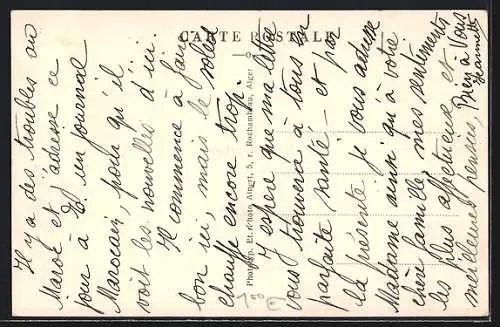 CARTE POSTALE
Il y a des troubles au
Maroc et j'adresse ce
jour à Ed. un journal
Marocain, pour qu'il
voit les nouvelles d'ici.
Il commence à faire
bon ici, mais le soleil
chauffe encore trop.
J'espère que ma lettre
vous trouvera à tous en
parfaite santé – et par
la présente je vous adresse
Madame ainsi qu'à votre
chère famille mes sentiments
les plus affectueux et
meilleures pensées, Bien à Vous
Jeannette
Photogr. Albert, 5, r. Rochambeau, Alger